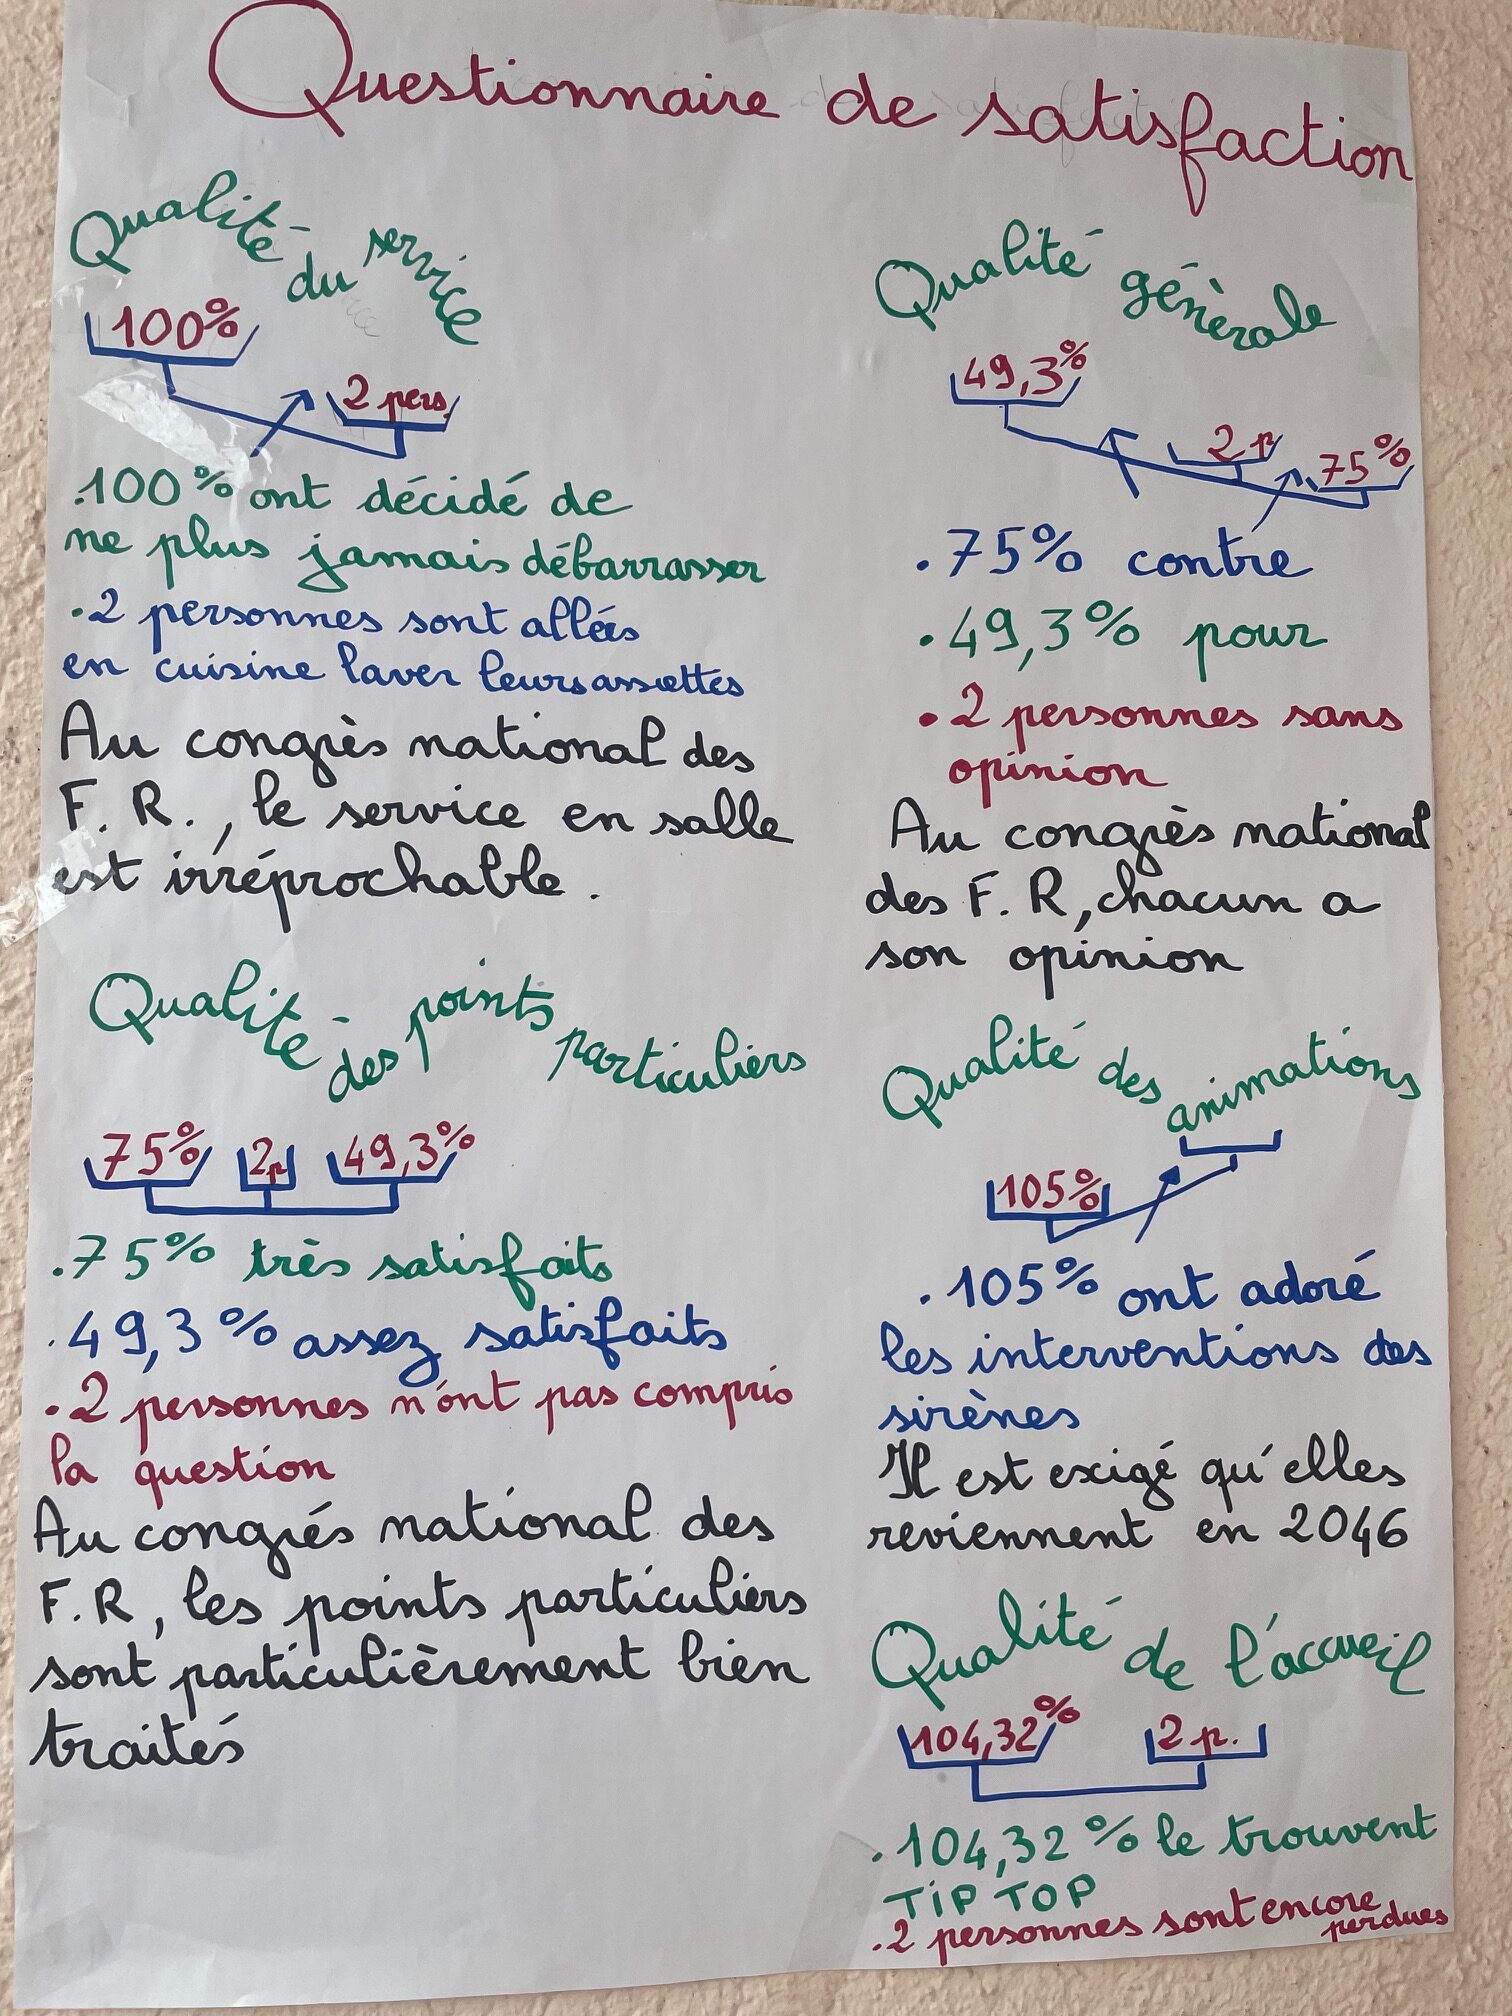 Questionnaire de satisfaction
Qualité du service
100%
2 pers.
.100% ont décidé de
ne plus jamais débarrasser
.2 personnes sont allées
en cuisine laver leurs assiettes
Au congrès national des
F. R., le service en salle
est irréprochable.
Qualité des points particuliers
75% 2p 49,3%
.75% très satisfaits
.49,3% assez satisfaits
.2 personnes n'ont pas compris
la question
Au congrés national des
F.R, les points particuliers
sont particulièrement bien
traités
Qualité générale
49,3%
2 p
75%
.75% contre
.49,3% pour
.2 personnes sans
opinion
Au congrès national
des F. R, chacun a
son opinion
Qualité des animations
105%
.105% ont adoré
les interventions des
sirènes
Il est exigé qu'elles
reviennent en 2046
Qualité de l'accueil
104,32% 2 p.
.104,32% le trouvent
TiP TOP
.2 personnes sont encore
perdues